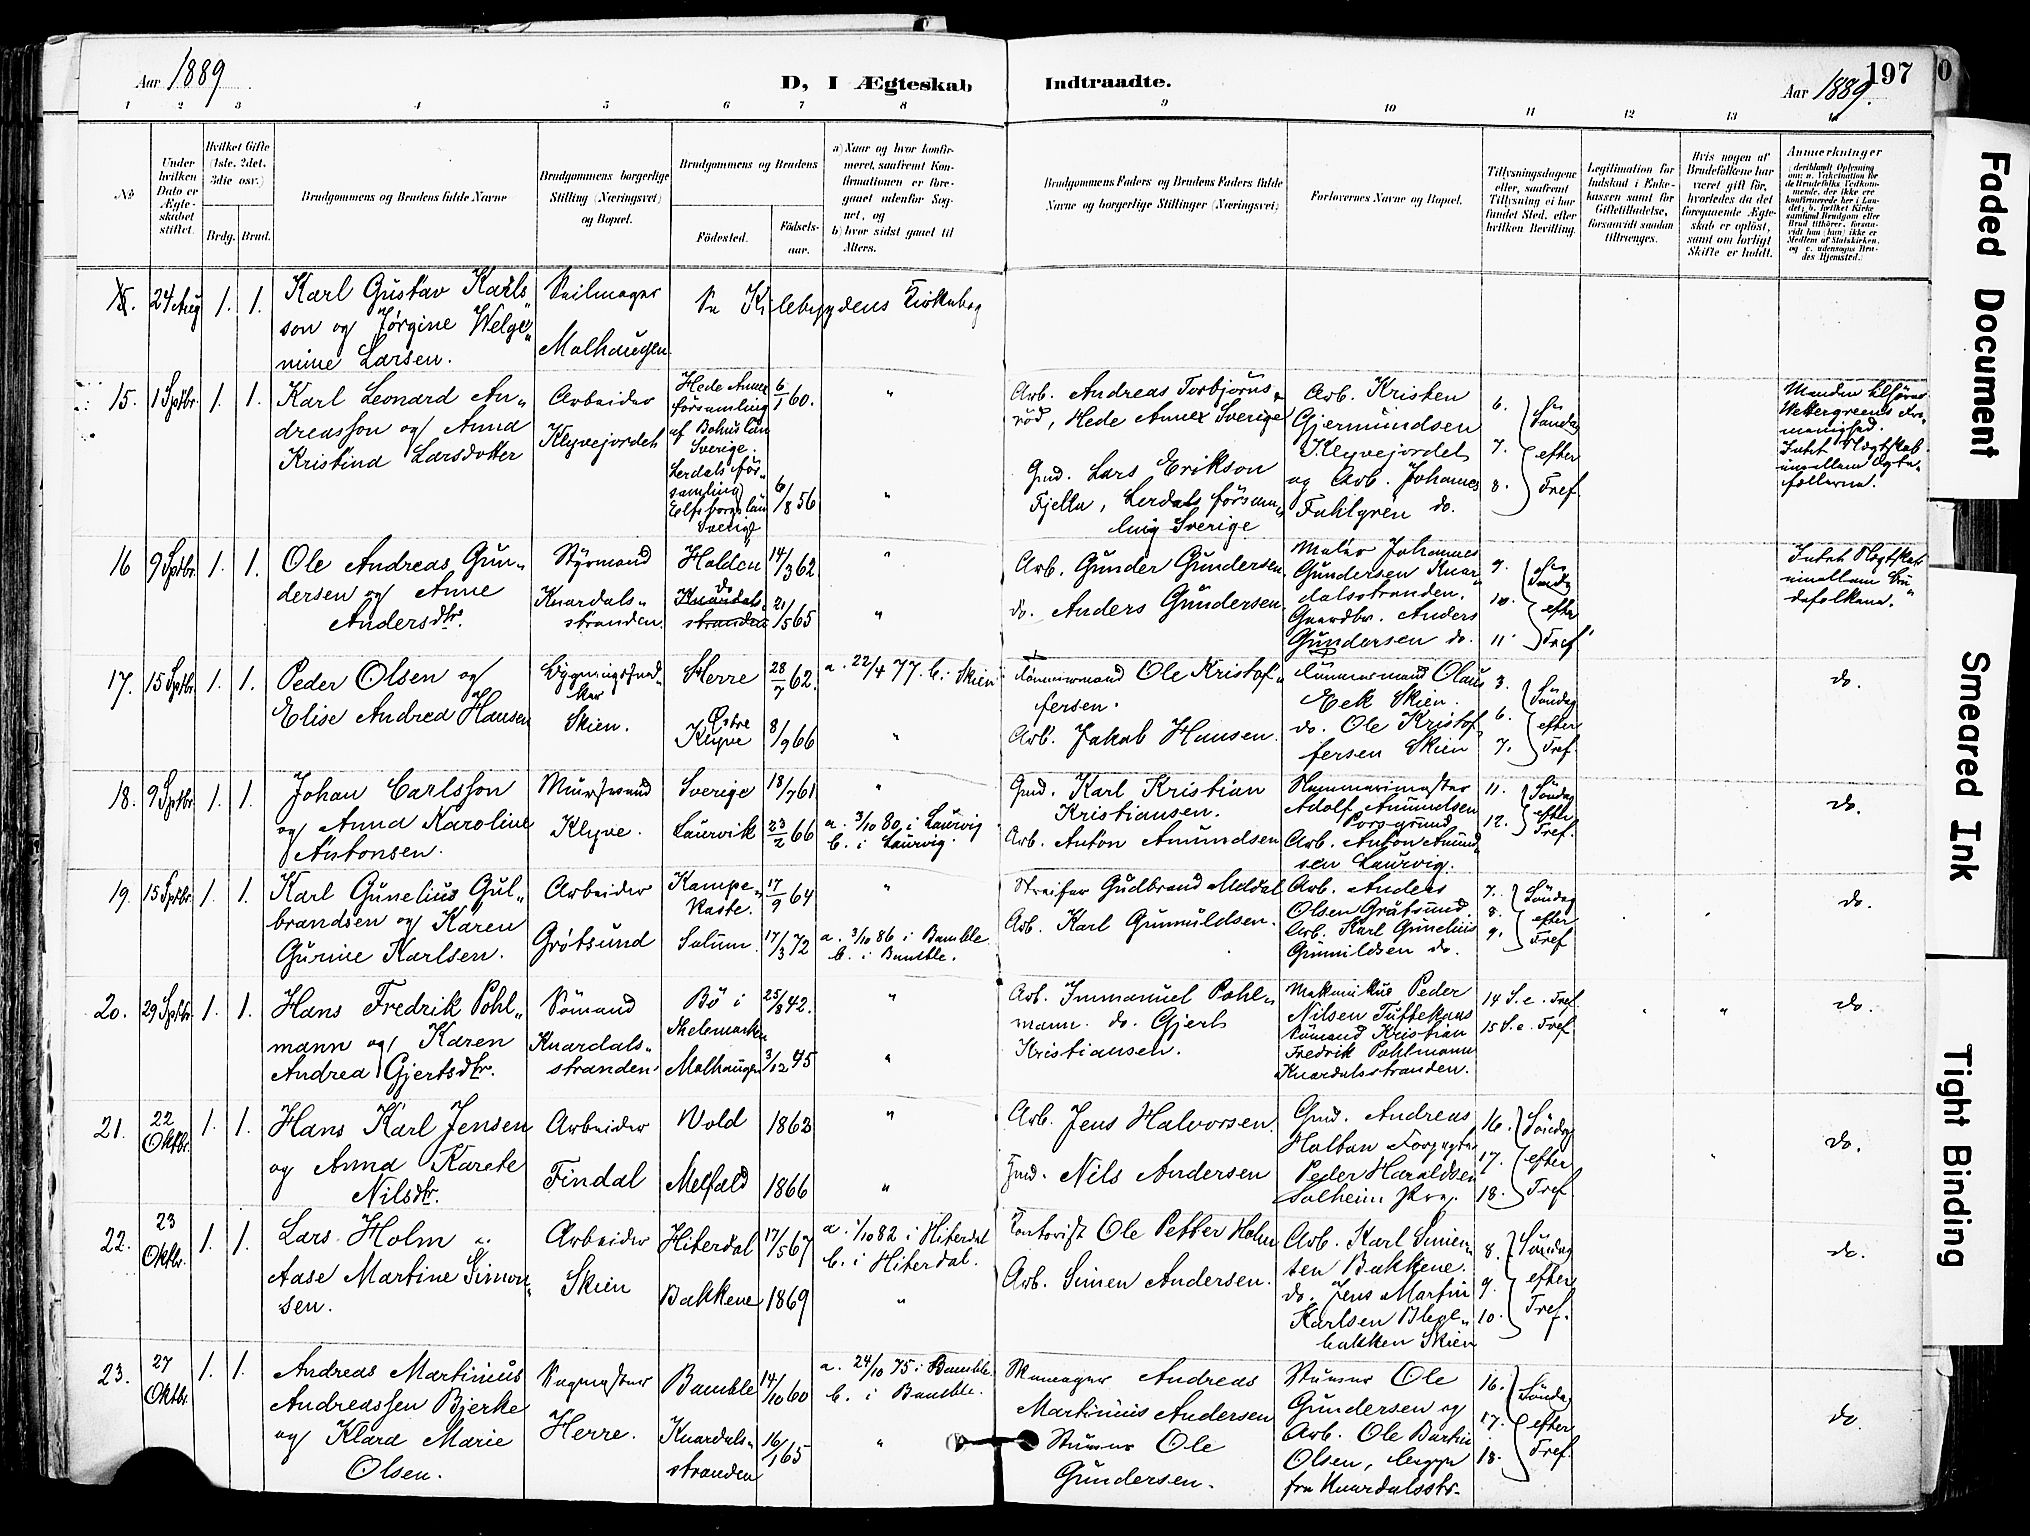 Aar 1889
D, I Ægteskab
Indtraadte.
197
Aar 1889.
1 2 3 4 5 6 7 8 9 10 11 12 13 14
No
Under hvilken Dato er Ægteskabet stiftet.
Hvilket Gifte (1ste, 2det, 3die osv.)
Brdg. Brud.
Brudgommens og Brudens fulde Navne
Brudgommens borgerlige Stilling (Næringsvei) og Bopæl.
Brudgommens og Brudens
Fødested.
Fødselsaar.
a) Naar og hvor konfirmeret, saafremt Konfirmationen er foregaaet udenfor Sognet, og
b) hvor sidst gaaet til Alters.
Brudgommens Faders og Brudens Faders fulde Navne og borgerlige Stillinger (Næringsvei)
Forlovernes Navne og Bopæl.
Tillysningsdagene eller, saafremt Tillysning ei har fundet Sted, efter hvilken Bevilling.
Legitimation for Indskud i Enkekassen samt for Giftetilladelse, forsaavidt saadan tiltrænges.
Hvis nogen af Brudefolkene har været gift før, hvorledes da det foregaaende Ægteskab er opløst, samt om lovligt Skifte er holdt.
Anmerkninger
24 Aug 1. 1.
Karl Gustav Karls
son og Jørgine Welge
mine Larsen.
Seilmager
Malhaugen
Se Kilebygdens Kirkebog
15. 1 Septbr. 1. 1.
Karl Leonard An„
dreasson og Anna
Kristina Larsdotter
Arbeider
Klyvejordet
Hede Annex
församling
af Bohus län
Sverige.
6/1 60.
Lerdals för
samling
Elfsborgs län
Sverige
6/8 56
Arb. Andreas Torbjörns„
röd, Hede Annex Sverige
Gmd. Lars Erikson
Fjella, Lerdals försam„
ling Sverige
Arb. Kristen
Gjermundsen
Klyvejordet
og Arb. Johannes
Fahlgren do.
6.
7.
8.
Søndag
efter
Tref.
Manden tilhører
Wettergreens Me
nighed.
Intet Slægtskab
imellem Ægte„
fællerne.
16 9 Septbr. 1. 1.
Ole Andreas Gun„
dersen og Anne
Andersdtr.
Styrmand
Knardals„
stranden
Halden 14/3 62
do
Knardals„
stranden 21/5 65
Arb. Gunder Gundersen
do. Anders Gundersen
Maler Johannes
Gundersen Knar
dalsstranden.
Gaardbr. Anders
Gundersen do.
9.
10.
11.
Søndag
efter
Tref.
Intet Slægtskab
imellem Bru
defolkene.
17. 15 Septbr. 1. 1.
Peder Olsen og
Elise Andrea Hansen
Bygningssned„
ker
Skien.
Herre 28/7 62.
Østre
Klyve 8/9 66
a. 22/4 77. b. i Skien
Tømmermand Ole Kristof„
fersen.
Arb. Jakob Hansen.
Tømmermand Olaus
Eek Skien.
do. Ole Kristof
fersen Skien
3.
6.
7.
Søndag
efter
Tref.
do.
18. 9 Septbr. 1. 1.
Johan Carlsson
og Anna Karoline
Antonsen.
Muursvend
Klyve.
Sverige 18/7 61
Laurvik 23/2 66
a. 3/10 80 i Laurvig
b. i Laurvig.
Gmd. Karl Kristian
Kristiansen.
Arb. Anton Amundsen
Hammermester
Adolf Amundsen
Porsgrund
Arb. Anton Amund„
sen Laurvig.
11.
12.
Søndag
efter
Tref.
do.
19. 15 Septbr. 1. 1.
Karl Gunelius Gul„
brandsen og Karen
Gurine Karlsen.
Arbeider
Grøtsund
Kampe„
kaste. 17/9 64
Solum 17/3 72
a. 3/10 86 i Bamble.
b. i Bamble.
Streifer Gudbrand Meldal
Arb. Karl Gunnuldsen.
Arb. Anders
Olsen Grøtsund.
Arb. Karl Gunelius
Gunnildsen do.
7.
8.
9.
Søndag
efter
Tref
do.
20. 29 Septbr. 1. 1.
Hans Fredrik Pohl„
mann og Karen
Andrea Gjertsdtr.
Sømand
Knardals„
stranden
Bø i
Thelemarken
25/8 42.
Malhaugen 3/12 45
Arb. Immanuel Pohl„
mann. do. Gjert
Kristiansen.
Mekanikus Peder
Nilsen Tuftenæs
Sømand Kristian
Fredrik Pohlmann
Knardalsstranden.
14 S. e. Tref.
15 S. e. Tref.
do.
21. 22 Oktbr. 1. 1.
Hans Karl Jensen
og Anna Karete
Nilsdtr.
Arbeider
Findal
Vold 1863
Melfald 1866
Arb. Jens Halvorsen.
Gmd. Nils Andersen
Gmd. Andreas
Holtan Forpagter
Peder Haraldsen
Solheim
16.
17.
18.
Søndag
efter
Tref
do.
22. 23 Oktbr. 1. 1.
Lars Holm og
Aase Martine Simon„
sen.
Arbeider
Skien
Hiterdal 17/5 67
Bakkene 1869
a. 1/10 82 i Hiterdal
b. i Hiterdal.
Kontorist Ole Petter Holm
Arb. Simen Andersen.
Arb. Karl Simen„
sen Bakkene.
do. Jens Martin
Karlsen Blege„
bakken Skien
8.
9.
10.
Søndag
efter
Tref.
do.
23. 27 Oktbr. 1. 1.
Andreas Martinius
Andreassen Bjerke
og Klara Marie
Olsen.
Sagmester
Herre.
Bamble 14/10 60
Knardals„
stranden 16/1 65
a. 24/10 75 i Bamble.
b. i Bamble.
Skomager Andreas
Martinius Andersen
Stuerer Ole
Gundersen.
Stuerer Ole
Gundersen og
Arb. Ole Bartin
Olsen, begge
fra Knardalsstr.
16.
17.
18.
Søndag
efter
Tref.
do.
Faded Document
Smeared Ink
Tight Binding